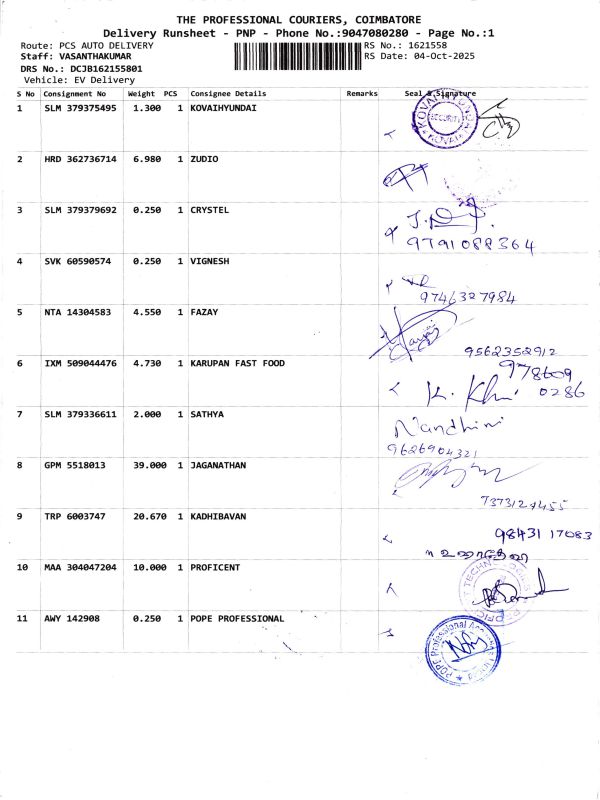 THE PROFESSIONAL COURIERS, COIMBATORE
Delivery Runsheet - PNP - Phone No.:9047080280 - Page No.:1
Route: PCS AUTO DELIVERY RS No.: 1621558
Staff: VASANTHAKUMAR RS Date: 04-Oct-2025
DRS No.: DCJB162155801
Vehicle: EV Delivery
S No Consignment No Weight PCS Consignee Details Remarks Seal & Signature
1 SLM 379375495 1.300 1 KOVAIHYUNDAI
SECURITY
2 HRD 362736714 6.980 1 ZUDIO
3 SLM 379379692 0.250 1 CRYSTEL
9791088364
4 SVK 60590574 0.250 1 VIGNESH
9746327984
5 NTA 14304583 4.550 1 FAZAY
9562352912
6 IXM 509044476 4.730 1 KARUPAN FAST FOOD
978609
0286
7 SLM 379336611 2.000 1 SATHYA
Nandhini
9626904321
8 GPM 5518013 39.000 1 JAGANATHAN
9 TRP 6003747 20.670 1 KADHIBAVAN
98431 17083
10 MAA 304047204 10.000 1 PROFICENT
11 AWY 142908 0.250 1 POPE PROFESSIONAL
POPE Professional